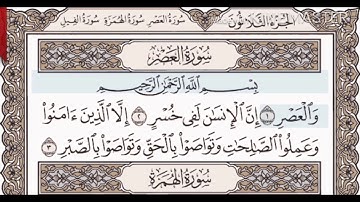 سُورَةُ العَصْرِ سُورَةُ الهُمَزَةِ سُورَةُ الفِيلِ
الجُزْءُ الثَّلَاثُونَ
سُورَةُ العَصْرِ
بِسْمِ اللَّهِ الرَّحْمَٰنِ الرَّحِيمِ
وَالْعَصْرِ ۝١ إِنَّ الْإِنسَٰنَ لَفِى خُسْرٍ ۝٢ إِلَّا الَّذِينَ ءَامَنُوا۟
وَعَمِلُوا۟ الصَّٰلِحَٰتِ وَتَوَاصَوْا۟ بِالْحَقِّ وَتَوَاصَوْا۟ بِالصَّبْرِ ۝٣
سُورَةُ الهُمَزَةِ